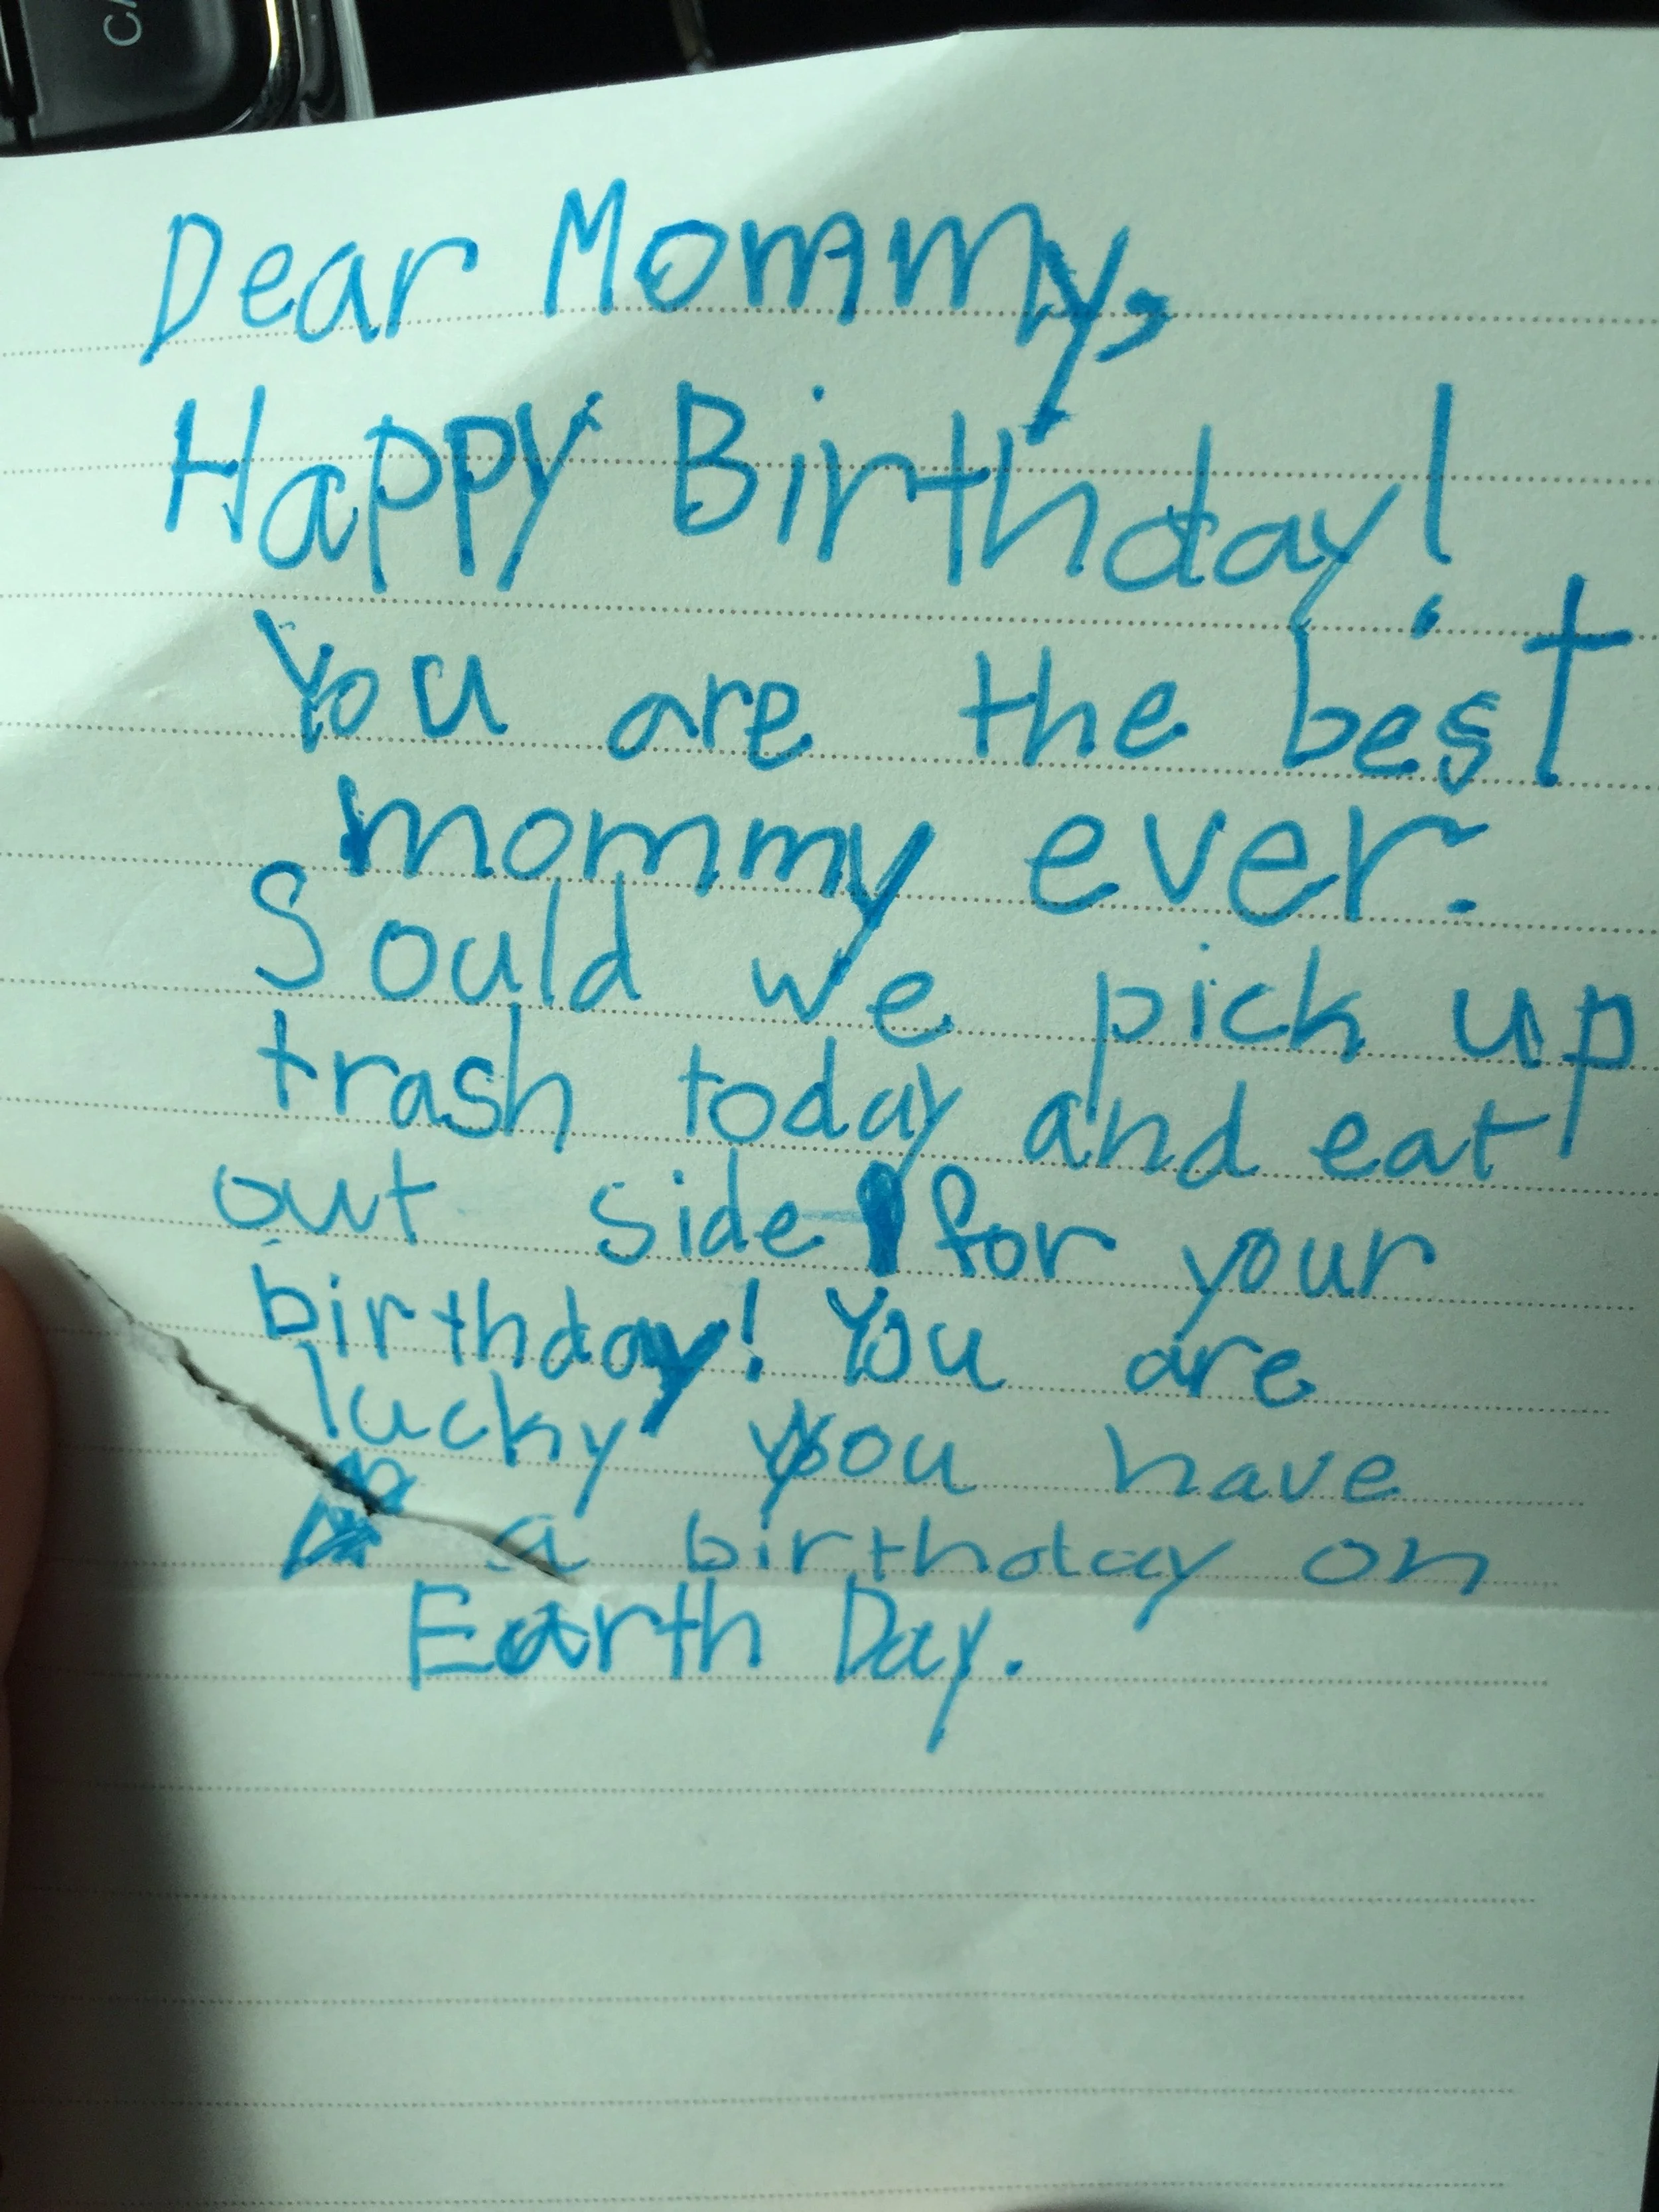 Dear Mommy,
Happy Birthday!
You are the best
mommy ever.
Sould we pick up
trash today and eat
out side for your
birthday! You are
lucky you have
a birthday on
Earth Day.